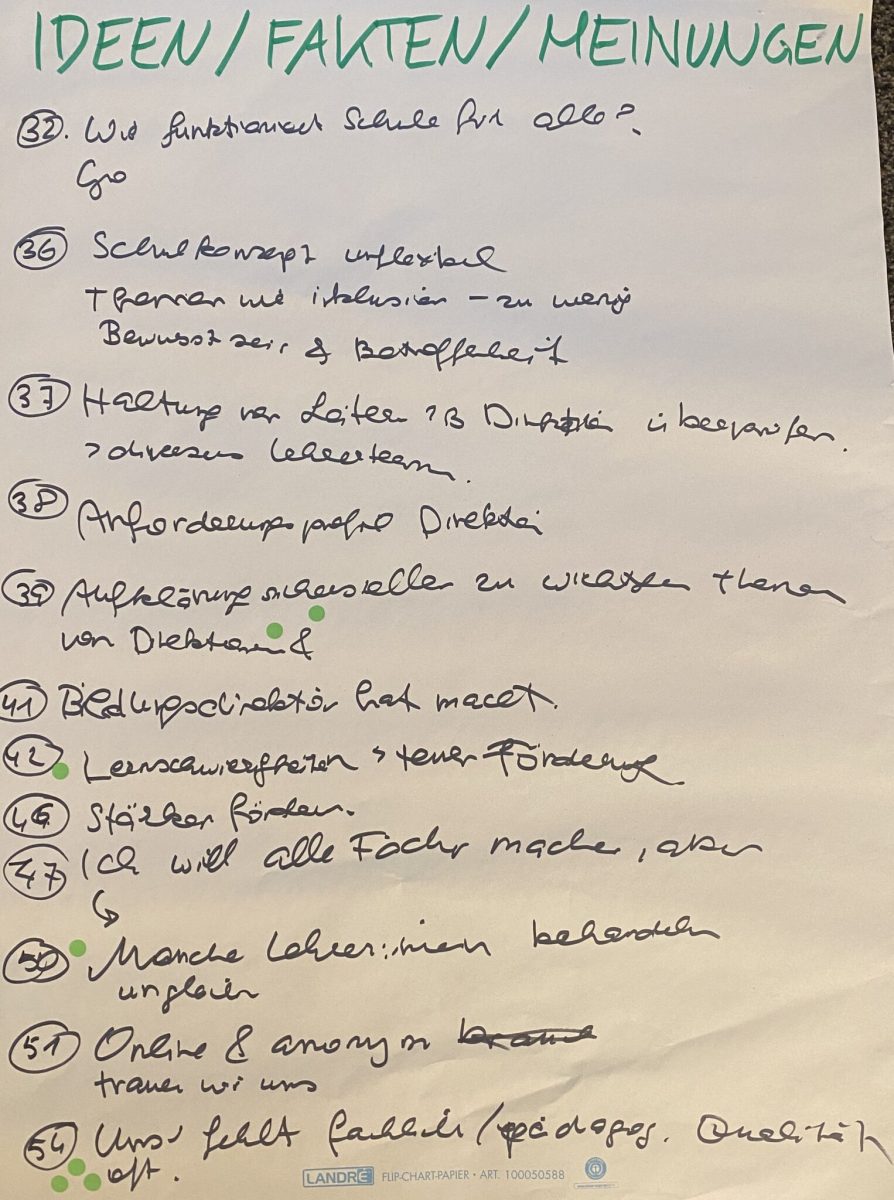 IDEEN/FAKTEN/MEINUNGEN
32. Wie funktioniert Schule für alle?
Gro
36 Schulkonzept unflexibel
Themen wie Inklusion - zu wenig
Bewusstsein & Betroffenheit
37 Haltung von Leitern zB Direktion überprüfen.
> diverses Lehrerteam.
38 Anforderungsprofil Direktei
39 Aufklärung sicherstellen zu wichtigen Themen
von Direktoren &
41 Bildungsdirektor hat macht.
42 Lernschwierigkeiten > teuer Förderung
46 Stärken fördern.
47 Ich will alle Fächer machen, aber
↳
50 Manche Lehrer:innen behandeln
ungleich
51 Online & anonym
trauen wir uns
54 Uns fehlt fachlich/pädagog. Qualität
oft.
LANDRÉ FLIP-CHART-PAPIER • ART. 100050588